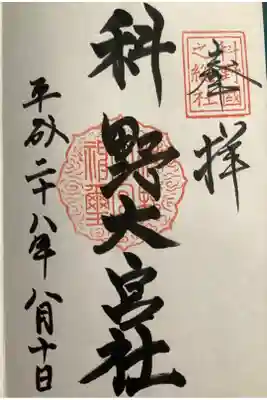 奉拝
科野國之総社
科野大宮社
平成二十八年八月十日